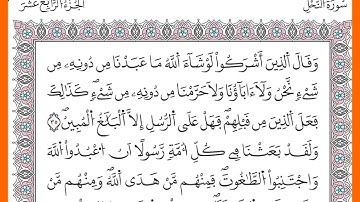 سُورَةُ النَّحْلِ الجُزءُ الرَّابِعَ عَشَرَ
وَقَالَ ٱلَّذِينَ أَشْرَكُوا۟ لَوْ شَآءَ ٱللَّهُ مَا عَبَدْنَا مِن دُونِهِۦ مِن
شَىْءٍ نَّحْنُ وَلَآ ءَابَآؤُنَا وَلَا حَرَّمْنَا مِن دُونِهِۦ مِن شَىْءٍ ۚ كَذَٰلِكَ
فَعَلَ ٱلَّذِينَ مِن قَبْلِهِمْ ۚ فَهَلْ عَلَى ٱلرُّسُلِ إِلَّا ٱلْبَلَٰغُ ٱلْمُبِينُ
وَلَقَدْ بَعَثْنَا فِى كُلِّ أُمَّةٍ رَّسُولًا أَنِ ٱعْبُدُوا۟ ٱللَّهَ
وَٱجْتَنِبُوا۟ ٱلطَّٰغُوتَ ۖ فَمِنْهُم مَّنْ هَدَى ٱللَّهُ وَمِنْهُم مَّنْ